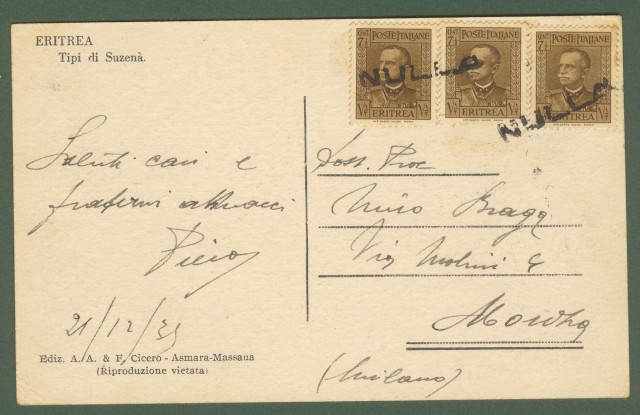 ERITREA
Tipi di Suzenà.
POSTE ITALIANE
7½
ERITREA
NULLA
POSTE ITALIANE
7½
ERITREA
POSTE ITALIANE
7½
ERITREA
NULLA
Saluti cari e
fraterni abbracci
Piero
21/12/35
Ediz. A. A. & F. Cicero - Asmara-Massaua
(Riproduzione vietata)
Dott. Proc
Nino
Via Molini 6
Monza
(Milano)